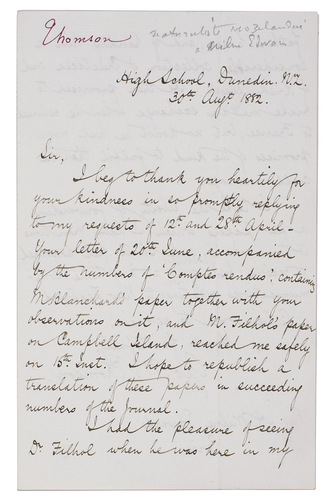 Thomson
naturaliste Nlle Zélandais
a Milne Edwards
High School, Dunedin. N.Z.
30th Augt. 1882.
Sir,
I beg to thank you heartily for
your kindness in so promptly replying
to my requests of 12th and 28th April.
Your letter of 20th June, accompanied
by the numbers of 'Comptes rendus', containing
M. Blanchard's paper together with your
observations on it, and M. Filhol's paper
on Campbell Island, reached me safely
on 15th Inst. I hope to republish a
translation of these papers in succeeding
numbers of the Journal.
I had the pleasure of seeing
Dr. Filhol when he was here in my